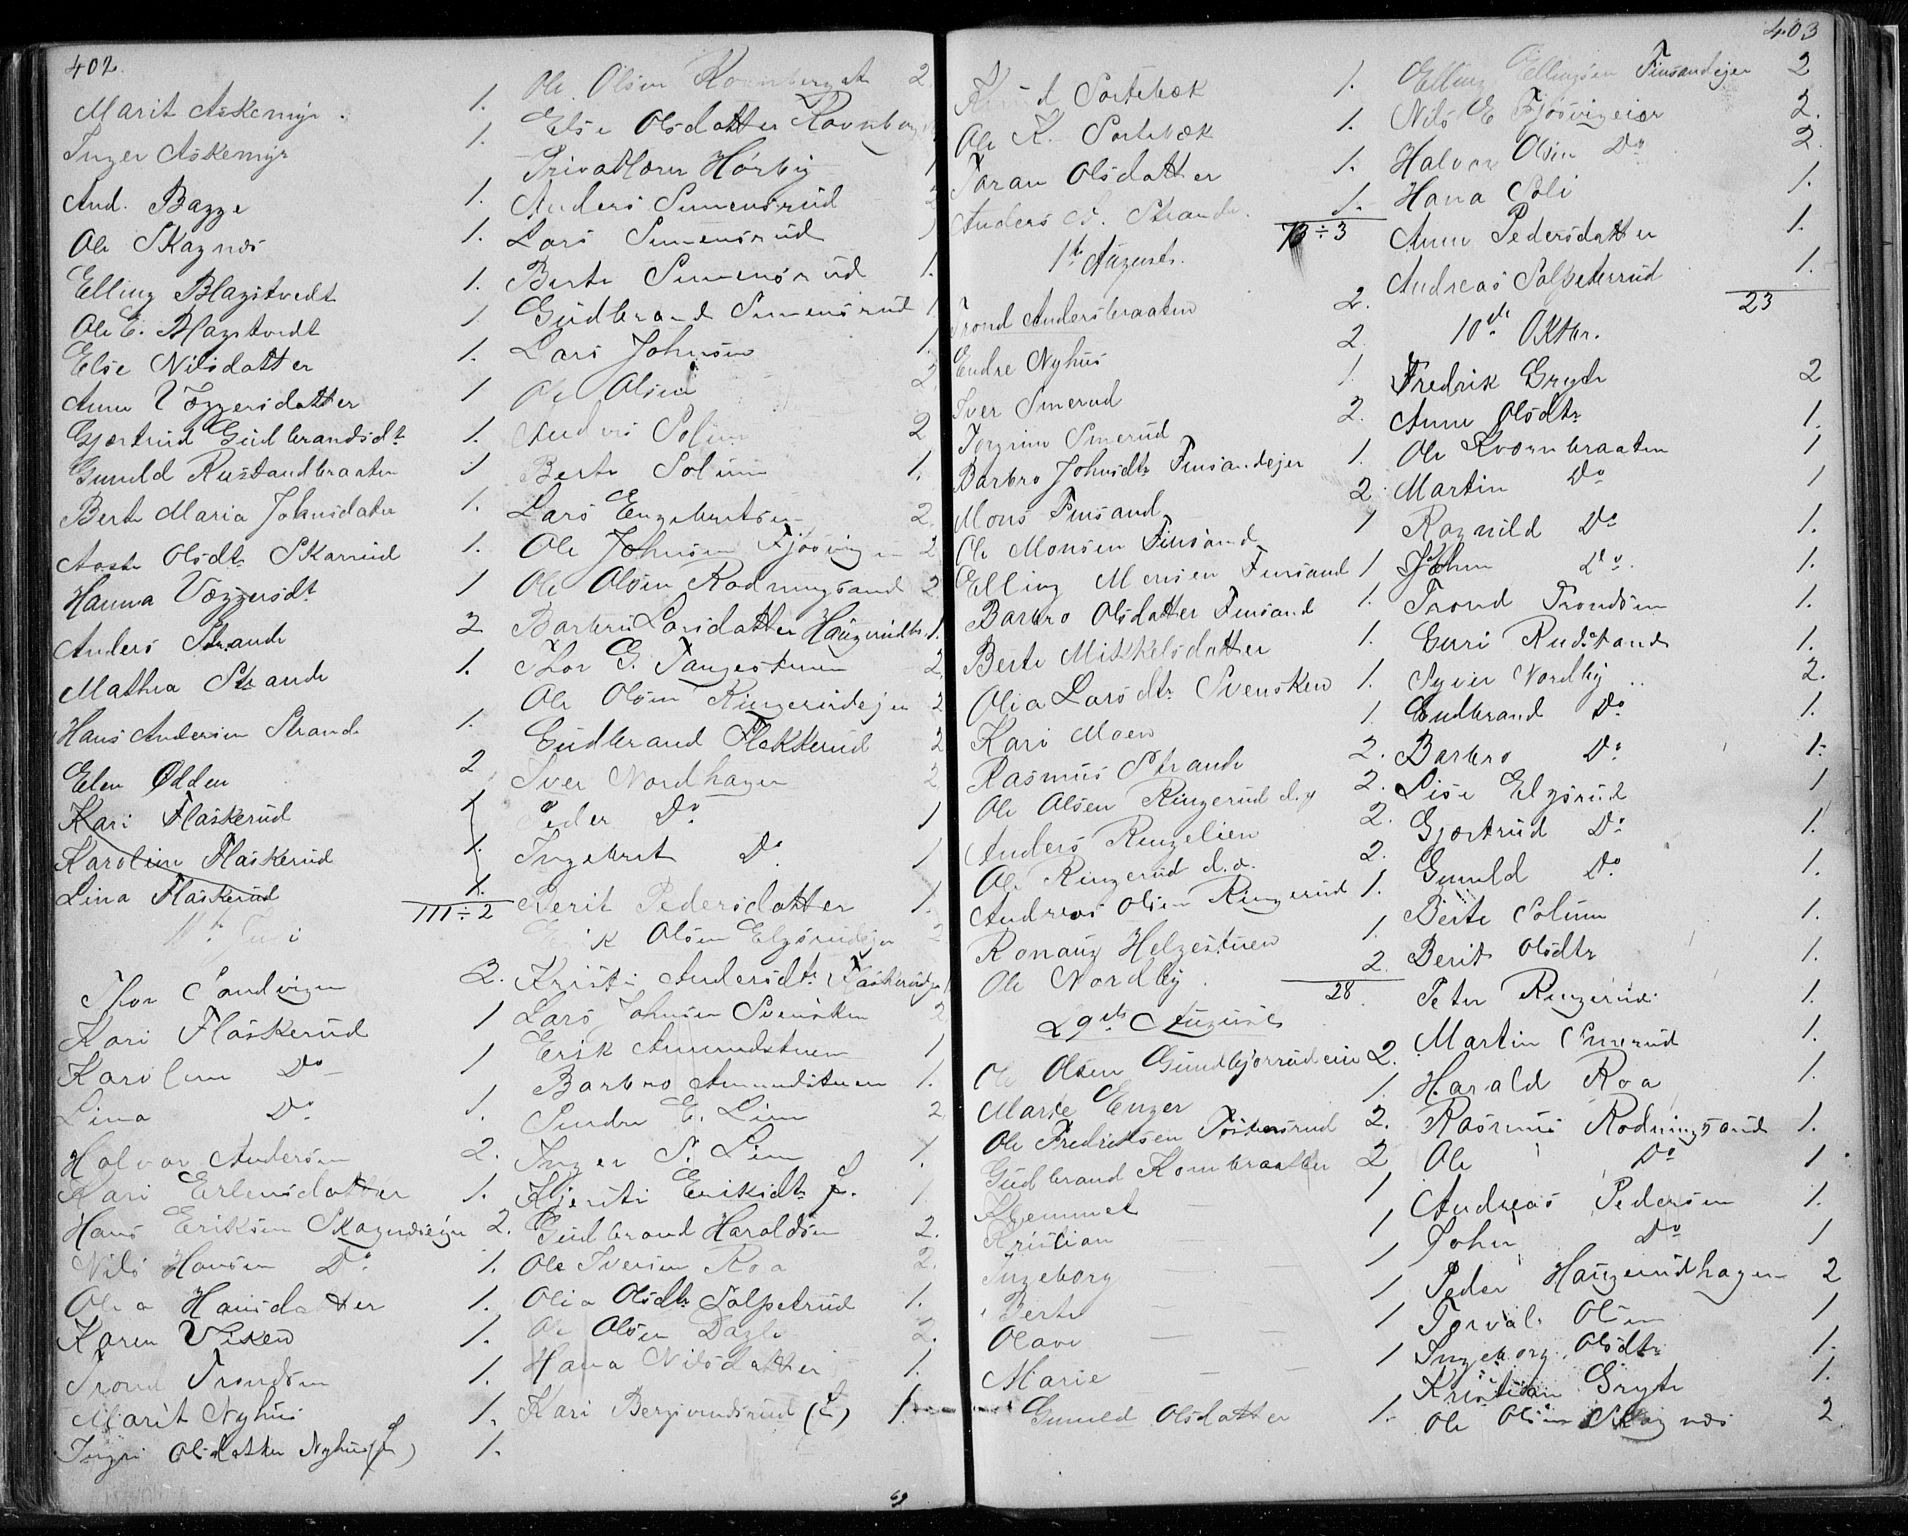 402
Marit Askemyr. 1.
Inger Askemyr 1.
And. Bagge 1.
Ole Skagnæs 1.
Elling Blagstvedt 1.
Ole E. Blagstvedt 1
Else Nilsdatter 1.
Anne Væggersdatter 1
Gjærtrud Gudbrandsdt 1.
Gunild Rustandbraaten 1
Berte Maria Johnsdater 1.
Aase Olsdtr Skarrud 1.
Hanna Væggersdt 1
Anders Strande 2
Mathea Strande 1.
Hans Andersen Strande 1.
Elen Odden 2
Kari Flaskerud 1
Karoline Flaskerud 1.
Lina Flaskerud 1.
111÷2
11te Juli
Thor Sandvigen 2.
Kari Flaskerud 1
Karoline Do 1
Lina Do 1.
Halvor Andersen 2.
Kari Erlensdatter 1.
Hans Eriksen Skagnæseier 2.
Nils Hansen Do 1.
Olea Hansdatter 1.
Karen Viken 1.
Trond Trondsen 1.
Marit Nyhus 1.
Ingri Olsdatter Nyhus 1.
Ole Olsen 2
Else Olsdatter
Hørby 1
Anders Simensrud
Lars Simensrud 1
Berte Simensrud 1.
Gudbrand Simensrud 1
Lars Johnsen 1.
Ole Olsen 2
Anders Solum 2
Berte Solum 1.
Lars Engebretsen 2.
Ole Johnsen 2
Ole Olsen Rodningsand 2
Barbru Larsdatter 1.
Thor G. Tangestuen 2
Ole Olsen Ringerudejer 2
Gudbrand Flaskerud 2
Iver Nordhagen 2
Peder Do 1
Ingebret Do 1
Berit Pedersdatter 1.
Erik Olsen Elgsrudejer 2
Kristi Andersdtr Flaskerudejer 1
Lars Johnsen Svensken 2
Erik Amundstuen 1
Barbro Amundstuen 1.
Sindre E. Lien 2
Inger S. Lien 1.
Kjersti Eriksdtr L. 1.
Gudbrand Haraldsen 2.
Ole Iversen Roa 2.
Olia Olsdtr Solpetrud 1.
Ole Olsen Dagli 2.
Hana Nilsdatter 1.
Kari Bergivendsrud (L) 1.
403
Knud Sortebæk 1.
Ole K. Sortebæk 1.
Toran Olsdatter 1.
Anders A. Strande. 1.
73÷3
1te August.
Trond Andersbraaten 2.
Endre Nyhus 2.
Iver Smerud 1.
Torgrim Smerud 2.
Barbro Johnsdtr Finsandejer 1.
Mons Finsand 2
Ole Monsen Finsand 1
Elling Monsen Finsand 1
Barbro Olsdatter Finsand 1.
Berte Mikkelsdatter 1.
Olia Larsdtr Svensken 1.
Kari Moen 1.
Rasmus Strande 2.
Ole Olsen Ringerud d.y 2.
Anders Ringelien 2.
Ole Ringerud d.æ. 2.
Andreas Olsen Ringerud 1.
Ronaug Helgestuen 1.
Ole Nordby. 2
28.
29de August
Ole Olsen Gundbjorrudeie 2.
Marie Enger 1.
Ole Fredriksen 2.
Gudbrand Kornbraatten 2
Klemmet — 1
Kristian — 1
Ingeborg — 1
Berte — 1
Olave — 1
Marie — 1
Gunild Olsdatter 1.
Elling Ellingsen Finsandejer 2
Nils E Fjøsvigeier 2.
Halvor Olsen Do 2.
Hana Soli 1.
Anne Pedersdatter 1.
Andreas Solpeterrud 1.
23
10de Oktbr.
Fredrik Gryte 2
Anne Olsdtr 1.
Ole Kværnbraaten 1
Martin Do 1
Ragnild Do 1.
John Do. 1.
Trond Trondsen 1.
Guri Rudstand 1.
Syver Nordby 2.
Gudbrand Do 1.
Barbro Do 1.
Lise Elgsrud 1
Gjærtrud Do 1.
Gunild Do 1.
Berte Solum 1.
Berit Olsdtr 1.
Peter Ringerud 1.
Martin Smerud 1.
Harald Roa 1.
Rasmus Rodningsand 1.
Ole Do 1.
Andreas Pedersen 1.
John Do 1
Peder Haugerudhagen 2
Torval Olsen 1
Ingeborg Olsdtr 1.
Kristian Gryte 1.
Ole Olsen Skagnæs 2